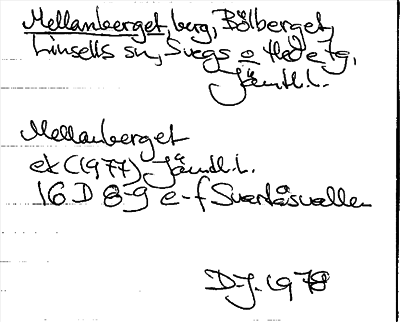 Mellanberget, berg, Bölberget,
Linsells sn, Svegs o Hede tg,
Jämtl.l.
Mellanberget
ek (1977) Jämtl.l.
16 D 8-9 e-f Svartåsvallen
D-J. 1978